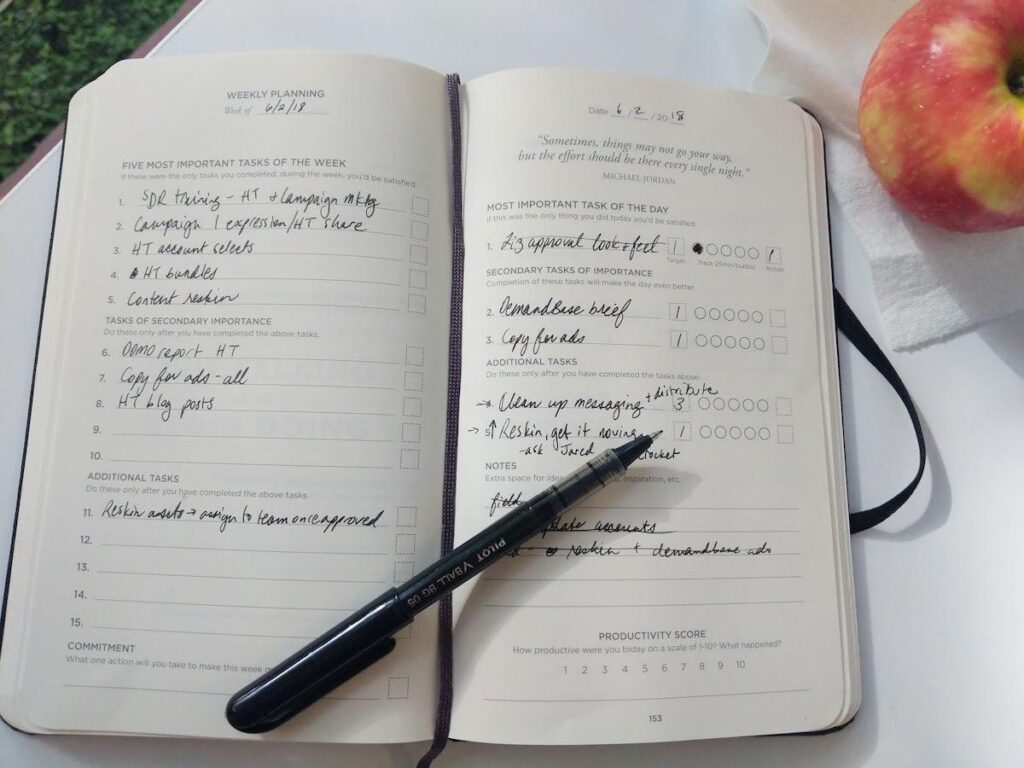 WEEKLY PLANNING
Week of 6/2/18
FIVE MOST IMPORTANT TASKS OF THE WEEK
If these were the only tasks you completed, during the week, you'd be satisfied.
1. SDR training - HT + Campaign mktg
2. Campaign 1 expression/HT share
3. HT account selects
4. HT bundles
5. Content reskin
TASKS OF SECONDARY IMPORTANCE
Do these only after you have completed the above tasks.
6. DEMO report HT
7. Copy for ads - all
8. HT blog posts
9.
10.
ADDITIONAL TASKS
Do these only after you have completed the above tasks.
11. Reskin assets → assign to team once approved
12.
13.
14.
15.
COMMITMENT
What one action will you take to make this week
Date 6 / 2 / 20 18
"Sometimes, things may not go your way,
but the effort should be there every single night."
MICHAEL JORDAN
MOST IMPORTANT TASK OF THE DAY
If this was the only thing you did today you'd be satisfied.
1. Liz approval look + feel 1 1
Target Track 25min/bubble Actual
SECONDARY TASKS OF IMPORTANCE
Completion of these tasks will make the day even better.
2. DemandBase brief 1
3. Copy for ads 1
ADDITIONAL TASKS
Do these only after you have completed the tasks above.
+ distribute
→ 4. Clean up messaging 3
→ 5. ↑ Reskin, get it moving 1
- ask Jared
NOTES
Extra space for inspiration, etc.
field
accounts
reskin + demandbase ads
PRODUCTIVITY SCORE
How productive were you today on a scale of 1-10? What happened?
1 2 3 4 5 6 7 8 9 10
153
PILOT VBALL BG 05